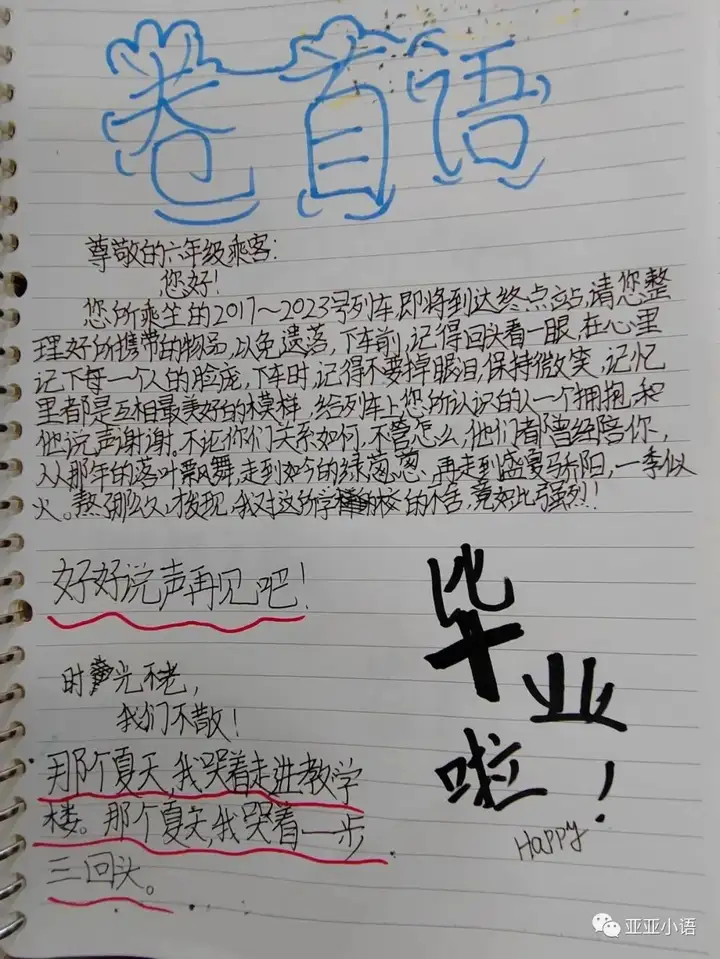 卷首语
尊敬的六年级乘客：
您好！
您所乘坐的2017～2023号列车即将到达终点站，请您整
理好所携带的物品，以免遗落，下车前，记得回头看一眼，在心里
记下每一个人的脸庞，下车时，记得不要掉眼泪，保持微笑，记忆
里都是互相最美好的模样，给列车上您所认识的人一个拥抱，和
他说声谢谢。不论你们关系如何，不管怎么，他们都曾经陪你，
从那年的落叶飘舞，走到如今的绿葱葱，再走到盛夏骄阳，一季似
火。熬那么久，才发现，我对这所学校的不舍，竟如此强烈！
好好说声再见吧！
时光不老，
我们不散！
那个夏天，我哭着走进教学
楼。那个夏天，我哭着一步
三回头。
毕业
啦！
Happy
亚亚小语